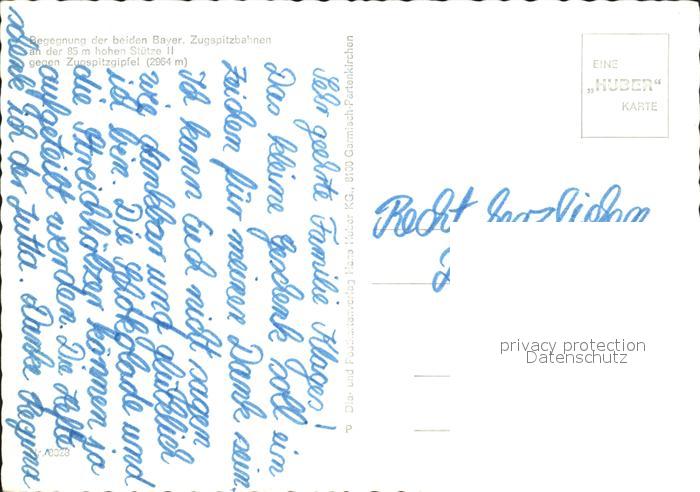 Begegnung der beiden Bayer. Zugspitzbahnen
an der 85 m hohen Stütze II
gegen Zugspitzgipfel (2964 m)
Sehr geehrte Familie !
Das kleine Geschenk soll ein
Zeichen für meinen Dank sein.
Ich kann Euch nicht sagen
wie dankbar und glücklich
ich bin. Die Schokolade und
die Streichhölzer können so
aufgeteilt werden. Die Hefte
schenk ich der Jutta. Danke Regina
Nr. 8028
Dia- und Postkartenverlag Hans Huber KG., 8100 Garmisch-Partenkirchen
P
EINE
„HUBER“
KARTE
Recht herzlichen
privacy protection
Datenschutz